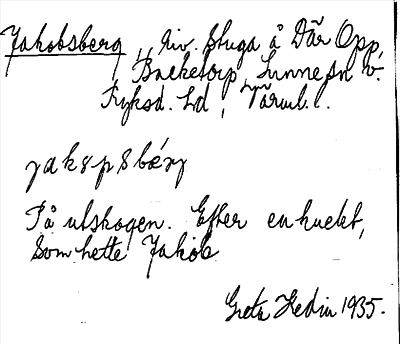 Jakobsberg, riv. stuga å Där Opp,
Backetorp, Sunne sn v.
Fryksd. hd, Värml.
jakspsbærj
På utskogen. Efter en knekt,
som hette Jakob
Greta Hedin 1935.